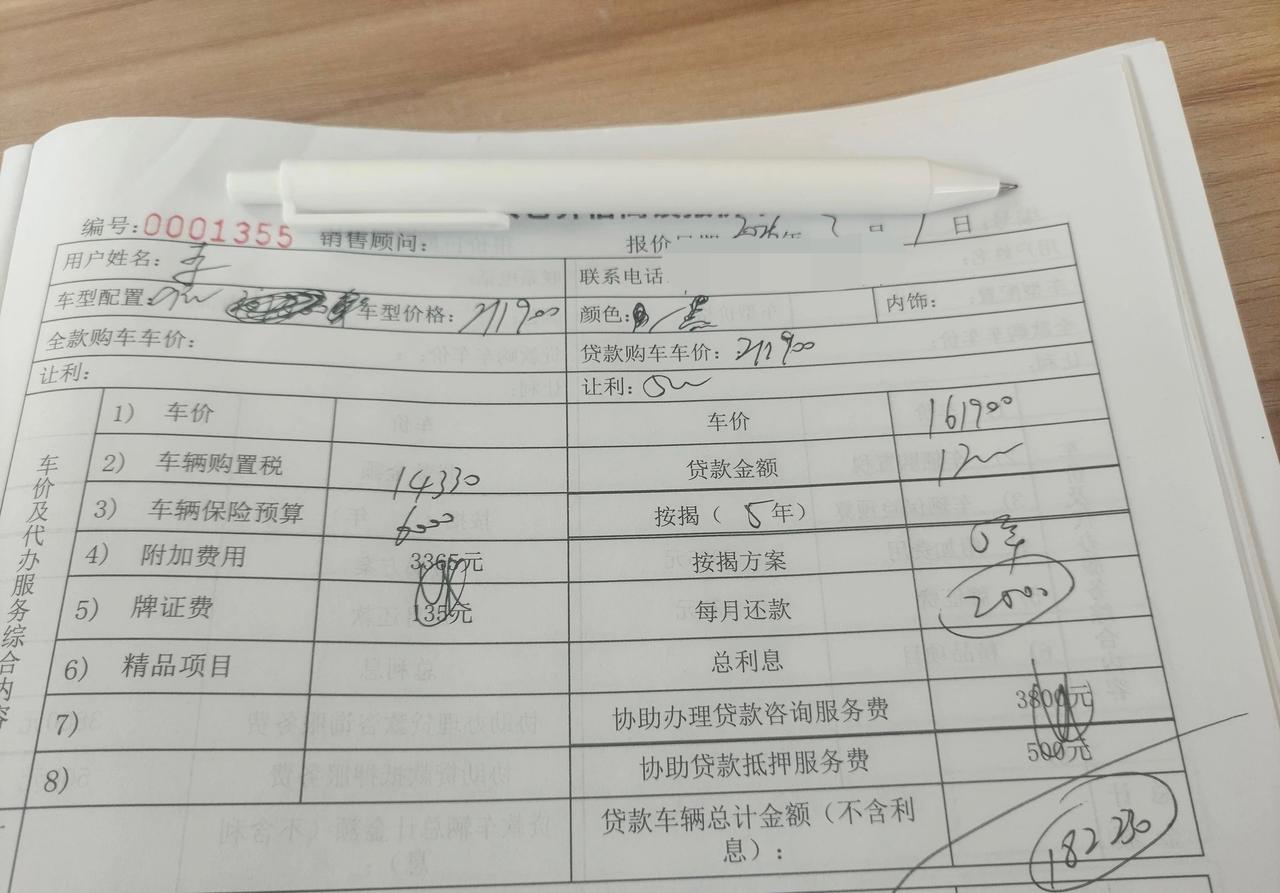 编号:0001355 销售顾问: 报价 2026年 月 1日
用户姓名: 李 联系电话
车型配置: 车型价格: 211900 颜色: 黑 内饰:
全款购车车价: 贷款购车车价: 211900
让利: 让利:
车价及代办服务综合内容
1) 车价 车价 161900
2) 车辆购置税 14330 贷款金额
3) 车辆保险预算 6000 按揭(5年)
4) 附加费用 3365元 按揭方案
5) 牌证费 135元 每月还款 2000
6) 精品项目 总利息
7) 协助办理贷款咨询服务费 3800元
8) 协助贷款抵押服务费 500元
贷款车辆总计金额(不含利息): 182230